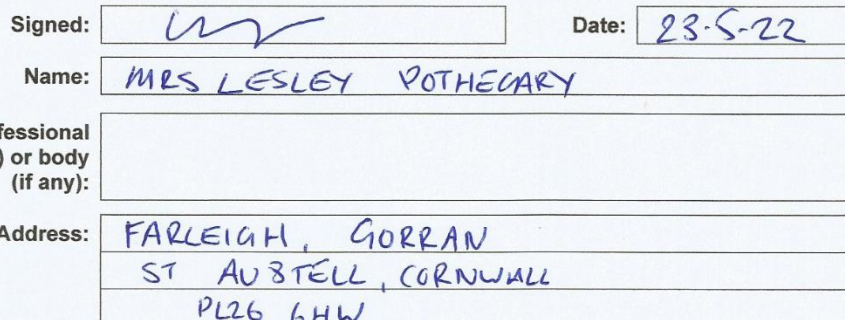 Signed: Date: 23-5-22
Name: MRS LESLEY POTHECARY
fessional
) or body
(if any):
Address: FARLEIGH, GORRAN
ST AUSTELL, CORNWALL
PL26 6HW